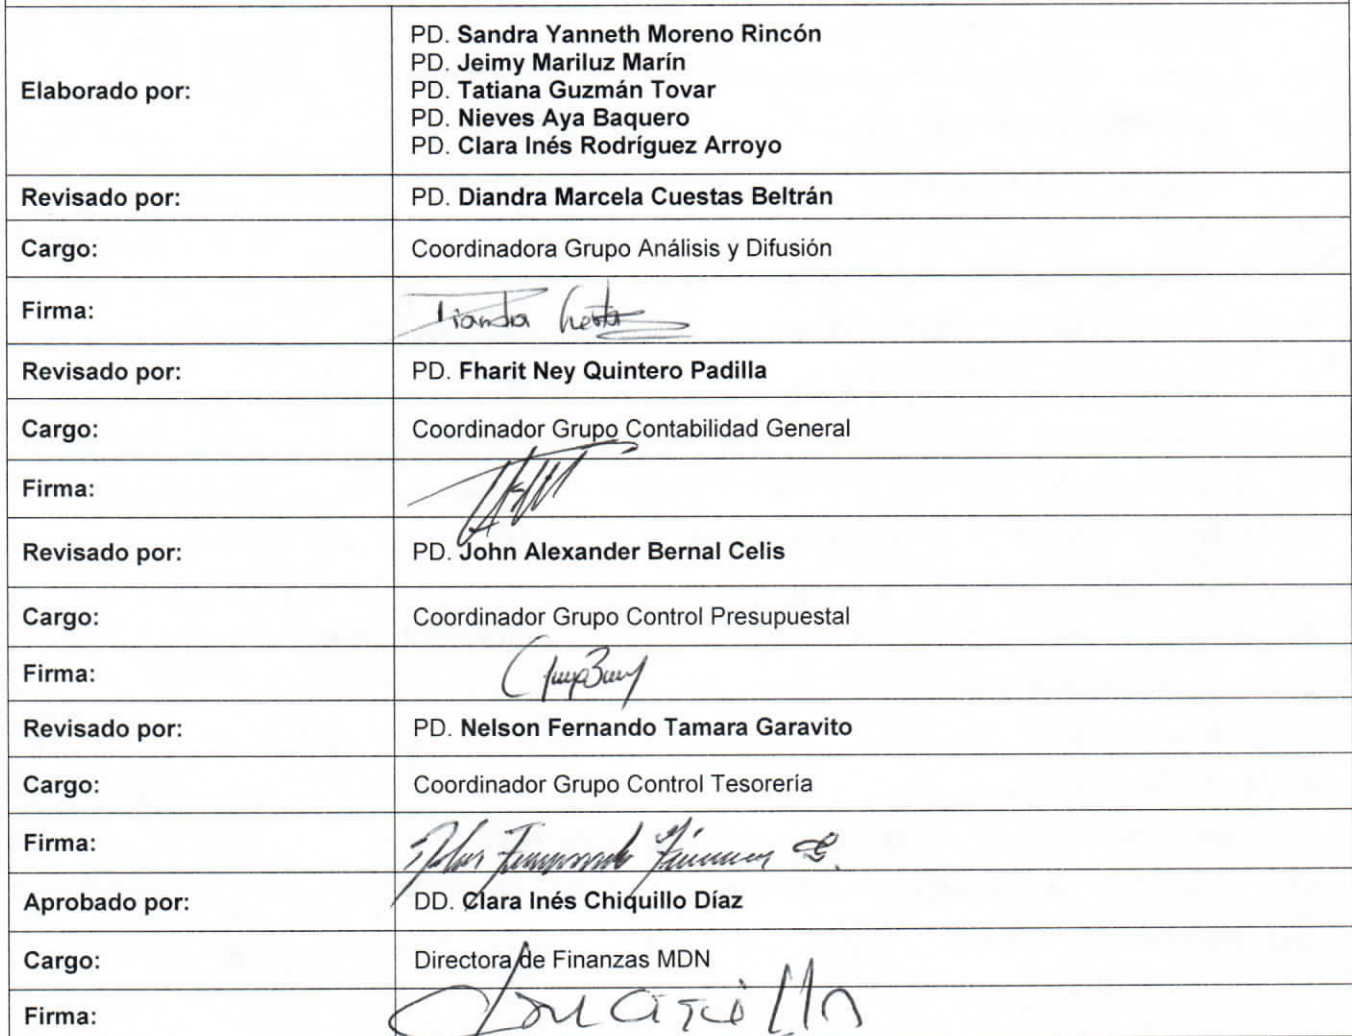 Elaborado por:
PD. Sandra Yanneth Moreno Rincón
PD. Jeimy Mariluz Marín
PD. Tatiana Guzmán Tovar
PD. Nieves Aya Baquero
PD. Clara Inés Rodríguez Arroyo
Revisado por: PD. Diandra Marcela Cuestas Beltrán
Cargo: Coordinadora Grupo Análisis y Difusión
Firma:
Revisado por: PD. Fharit Ney Quintero Padilla
Cargo: Coordinador Grupo Contabilidad General
Firma:
Revisado por: PD. John Alexander Bernal Celis
Cargo: Coordinador Grupo Control Presupuestal
Firma:
Revisado por: PD. Nelson Fernando Tamara Garavito
Cargo: Coordinador Grupo Control Tesorería
Firma:
Aprobado por: DD. Clara Inés Chiquillo Díaz
Cargo: Directora de Finanzas MDN
Firma: